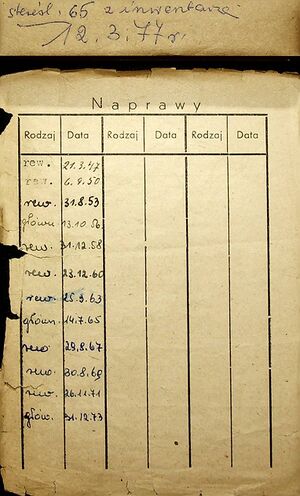 skreśl. 65 z inwentarza
12.3.77 r.
Naprawy
Rodzaj Data Rodzaj Data Rodzaj Data
rew. 21.3.47
rew. 6.9.50
rew. 31.8.53
główn 13.10.56
rew. 31.12.58
rew. 23.12.60
rew. 25.9.63
główn. 14.7.65
rew 29.8.67
rew. 30.8.69
rew. 26.11.71
głów. 31.12.73